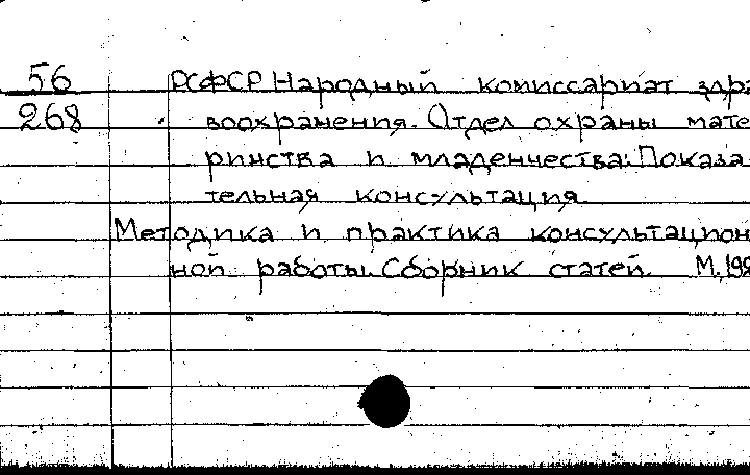 56
268
РСФСР Народный комиссариат здра
воохранения. Отдел охраны мате
ринства и младенчества. Показа
тельная консультация
Методика и практика консультацион
ной работы. Сборник статей. М.,